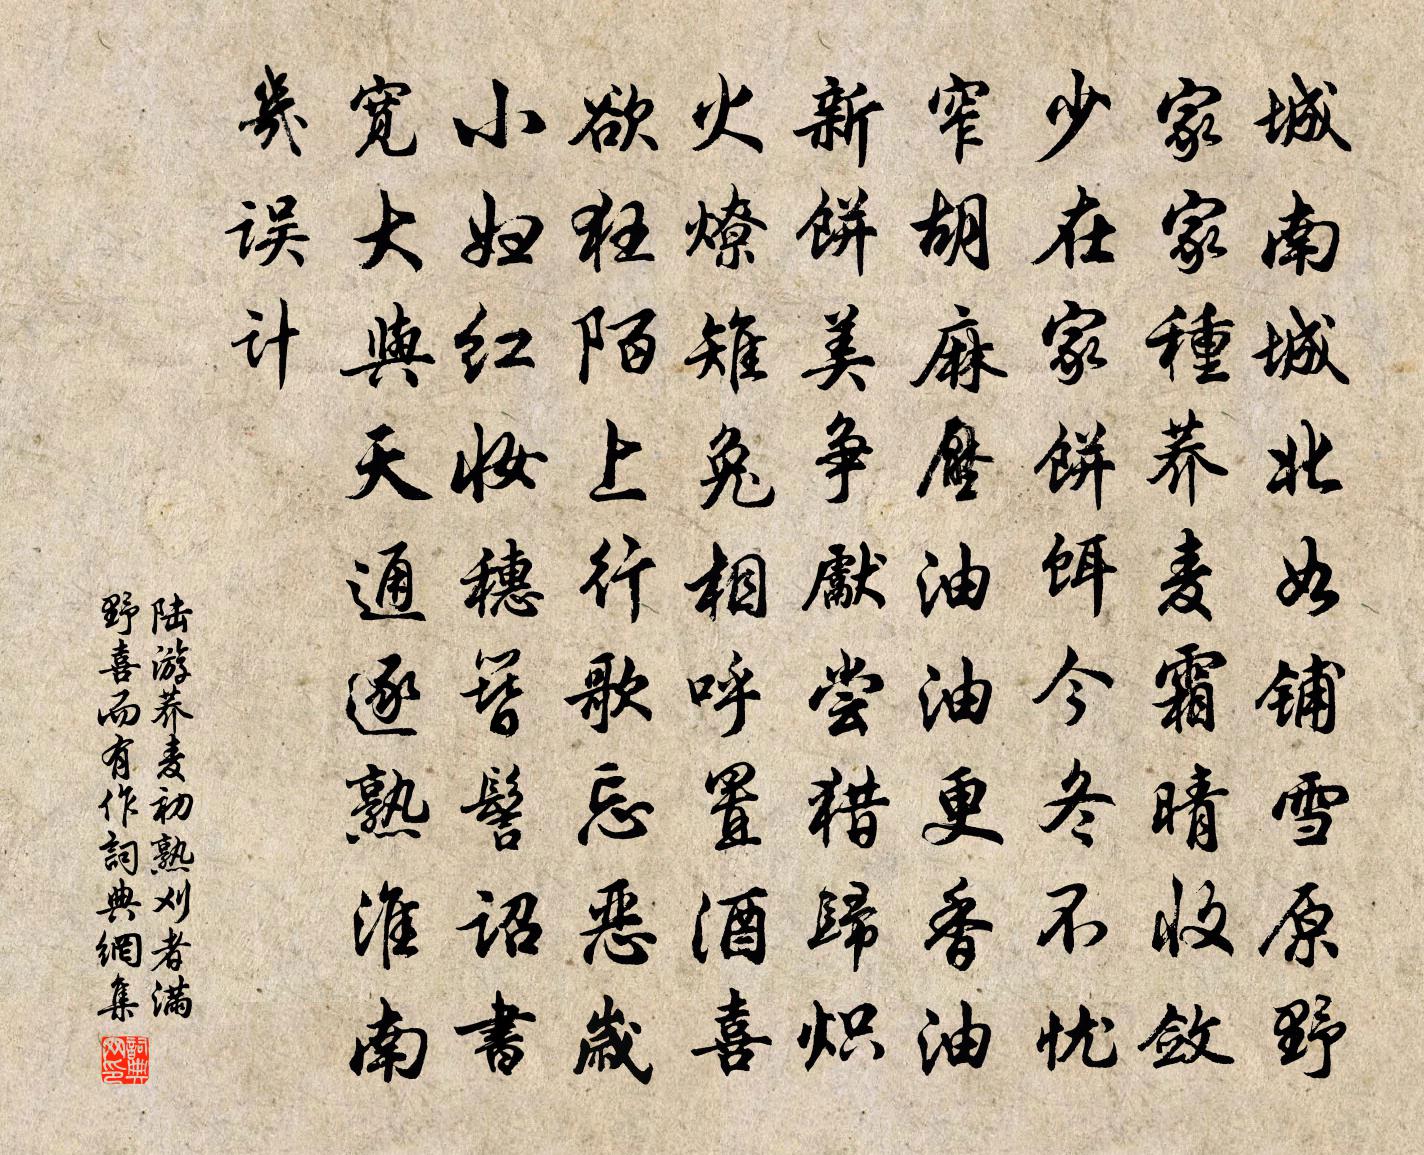 城南城北如铺雪原野
家家種荞麦霜晴收敛
少在家餅饵今冬不忧
窄胡麻壓油油更香油
新餅美争獻尝猎歸炽
火燎雉兔相呼置酒喜
欲狂陌上行歌忘恶歲
小妇红妆穗簪髻诏书
宽大與天通逐熟淮南
幾误计
陆游荞麦初熟刈者满
野喜而有作詞典網集
詞典网印